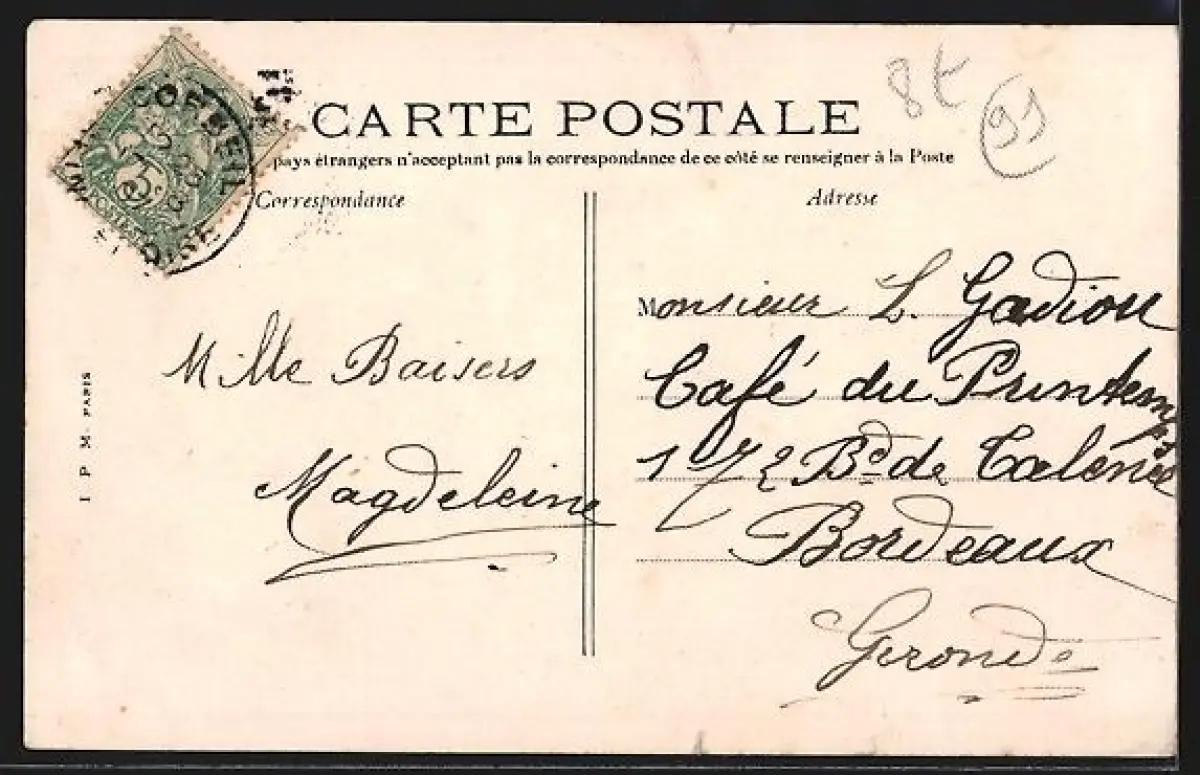 CORBEIL
OISE
5c
8t
91
CARTE POSTALE
pays étrangers n'acceptant pas la correspondance de ce côté se renseigner à la Poste
Correspondance
Adresse
Mille Baisers
Magdeleine
Monsieur L. Gadiou
Café du Printemps
172 Bd de Talence
Bordeaux
Gironde
I P M. PARIS